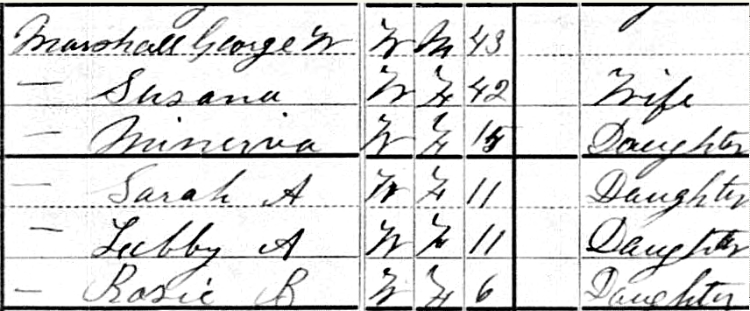 Marshall George W W M 43
— Susana W F 42 Wife
— Minerva W F 15 Daughter
— Sarah A W F 11 Daughter
— Lubby A W F 11 Daughter
— Rosie B W F 6 Daughter